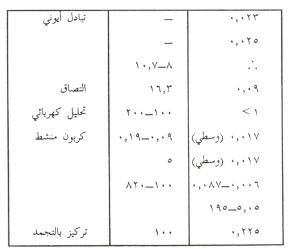 تبادل أيوني — ٠,٠٢٣
— ٠,٠٢٥
٨–١٠,٧ ∴
التصاق ١٦,٣ ٠,٠٩
تحليل كهربائي ١٠٠–٢٠٠ < ١
كربون منشط ٠,٠٩–٠,١٩ ٠,٠١٧ (وسطي)
٥ ٠,٠١٧ (وسطي)
١٠٠–٨٢٠ ٠,٠٠٦–٠,٠٨٧
٥,٠٥–١٩٥
تركيز بالتجمد ١٠٠ ٠,٢٢٥